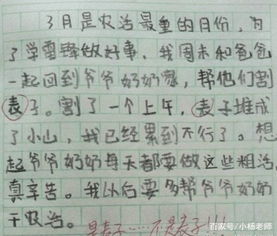 3月是农活最重的日份，为
了学雷锋做好事，我周末和爸爸
一起回到爷爷奶奶家，帮他们割
表子。割了一个上午，表子堆成
了小山，我已经累到不行了。想
起爷爷奶奶每天都要做这些粗活
真辛苦。我以后要多帮爷爷奶奶
干农活。
是麦子……不是表子!!!
百家号/小杨老师